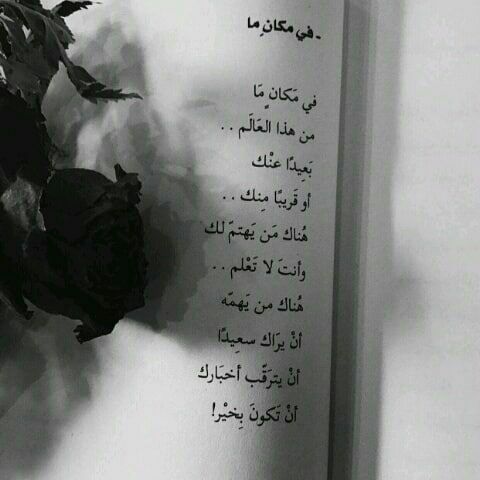 - في مكانٍ ما
في مَكان ٍ مَا
من هذا العَالَم . .
بَعِيدًا عنْك
أو قَريبًا مِنك . .
هُناك مَن يَهتمّ لك
وأنتَ لا تَعْلم . .
هُناك من يَهمّه
أنْ يرَاك سعِيدًا
أنْ يترَقّب أخبَارك
أنْ تَكونَ بِخيْر!